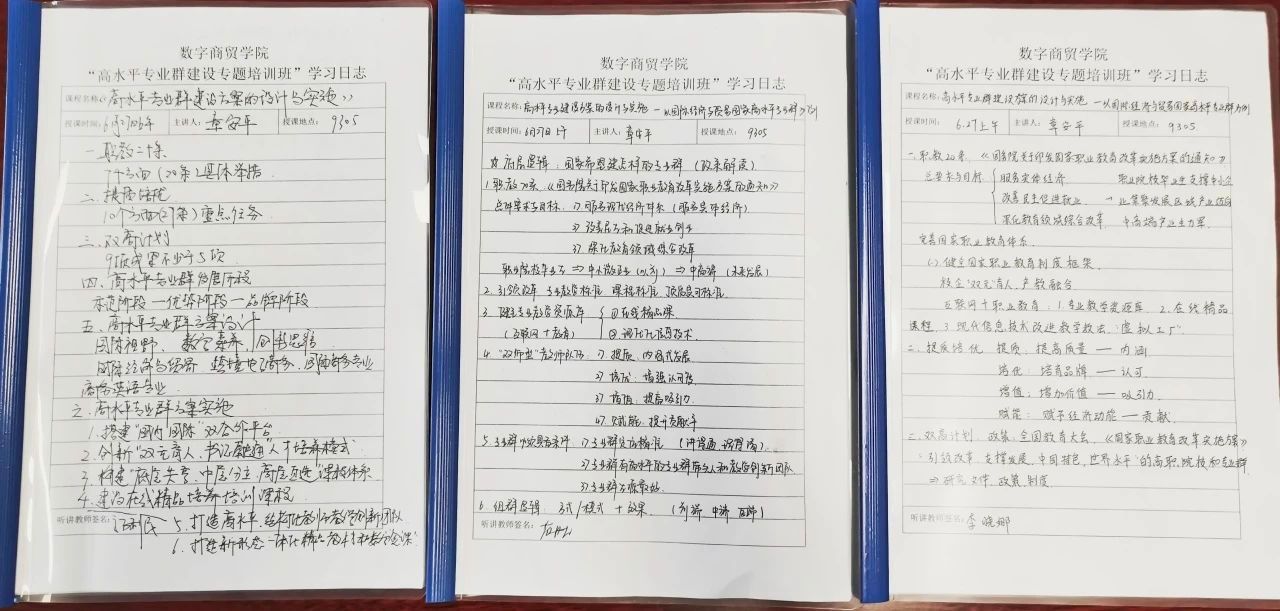 数字商贸学院
“高水平专业群建设专题培训班”学习日志
课程名称：《高水平专业群建设方案的设计与实施》
授课时间：6月27日上午 主讲人：章安平 授课地点：9305
一、职教二十条
7个方面（20条）具体举措
二、提质培优
10个方面（27条）重点任务
三、双高计划
9取成果不少于5项
四、高水平专业群发展阶段
示范阶段一优势阶段一品牌阶段
五、高水平专业群方案设计
国际视野、数字素养、创新思维
国际经济与贸易、跨境电子商务、国际商务专业
商务英语专业
六、高水平专业群方案实施
1.搭建“国内国际”双合作平台
2.创新“双元育人、书证融通”人才培养模式
3.构建“底层共享、中层分立、高层互选”课程体系
4.建设在线精品培养培训课程
听讲教师签名： 5.打造高水平、结构化教师教学创新团队
6.打造新形态一体化
数字商贸学院
“高水平专业群建设专题培训班”学习日志
课程名称：高水平专业建设方案的设计与实施一以国际经济与贸易国家高水平专业群为例
授课时间：6月27日上午 主讲人：章安平 授课地点：9305
底层逻辑：国家希望建怎样的专业群（政策解读）
1.职教20条，《国务院关于印发国家职业教育改革实施方案的通知》
总体要求与目标：1）服务现代经济体系（服务实体经济）
2）改善民生和促进就业创业
3）深化教育领域综合改革
职业院校毕业生⇒中小微企业（以前）⇒中高端（未来发展）
2.引领改革、专业教学标准、课程标准、顶岗实习标准
3.健全专业教学资源库 ①在线精品课
（互联网+教育） ②现代化信息技术
4.“双师型”教师队伍 1）提质、内涵式发展
2）培优：增强认可度
3）增值：提高吸引力
4）赋能：提升贡献率
5.专业群 1）专业群 标准（课程通、）
2）专业群有高水平的专业群带头人和教学创新团队
3）专业群
6.组群逻辑：3式/模式+效果（
听讲教师签名：
数字商贸学院
“高水平专业群建设专题培训班”学习日志
课程名称：高水平专业群建设方案的设计与实施一以国际经济与贸易国家高水平专业群为例
授课时间：6.27上午 主讲人：章安平 授课地点：9305
一.职教20条.《国务院关于印发国家职业教育改革实施方案的通知》
总要求与目标 服务实体经济 职业院校毕业生支撑中小企
改善民生促进就业 → 业集聚发展区域产业迈向
深化教育领域综合改革 中高端产业生力军.
完善国家职业教育体系.
(一).健全国家职业教育制度框架.
校企“双元”育人.产教融合
互联网+职业教育：1.专业教学资源库.2.在线精品
课程.3.现代信息技术改进教学教法.“虚拟工厂”.
二.提质培优 提质：提高质量 — 内涵
培优：培育品牌 — 认可.
增值：增加价值 — 吸引力.
赋能：赋予经济动能 — 贡献.
三.双高计划.政策：全国教育大会.《国家职业教育改革实施方案》
“引领改革、支撑发展、中国特色、世界水平”的高职院校和专业群.
⇒研究文件、政策、制度.
听讲教师签名：李晓娜